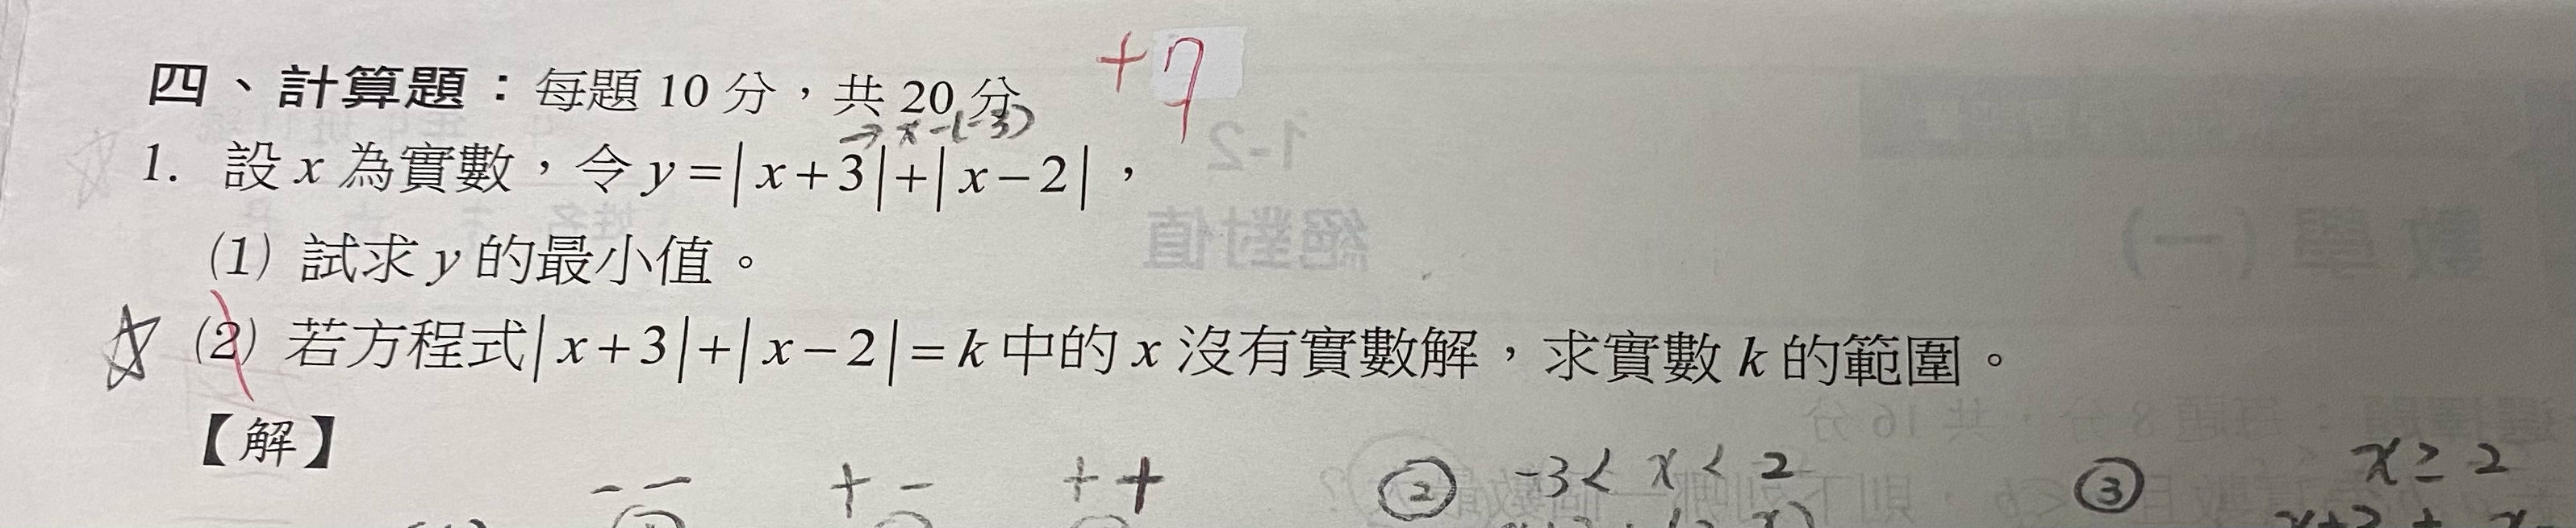 +7
四、計算題：每題 10 分，共 20 分
→ x-(-3)
1. 設 x 為實數，令 y=|x+3|+|x-2|，
(1) 試求 y 的最小值。
(2) 若方程式|x+3|+|x-2|=k 中的 x 沒有實數解，求實數 k 的範圍。
【解】
- - + - + + ② -3< x < 2 ③ x ≥ 2
1-2
絕對值
數學(一)